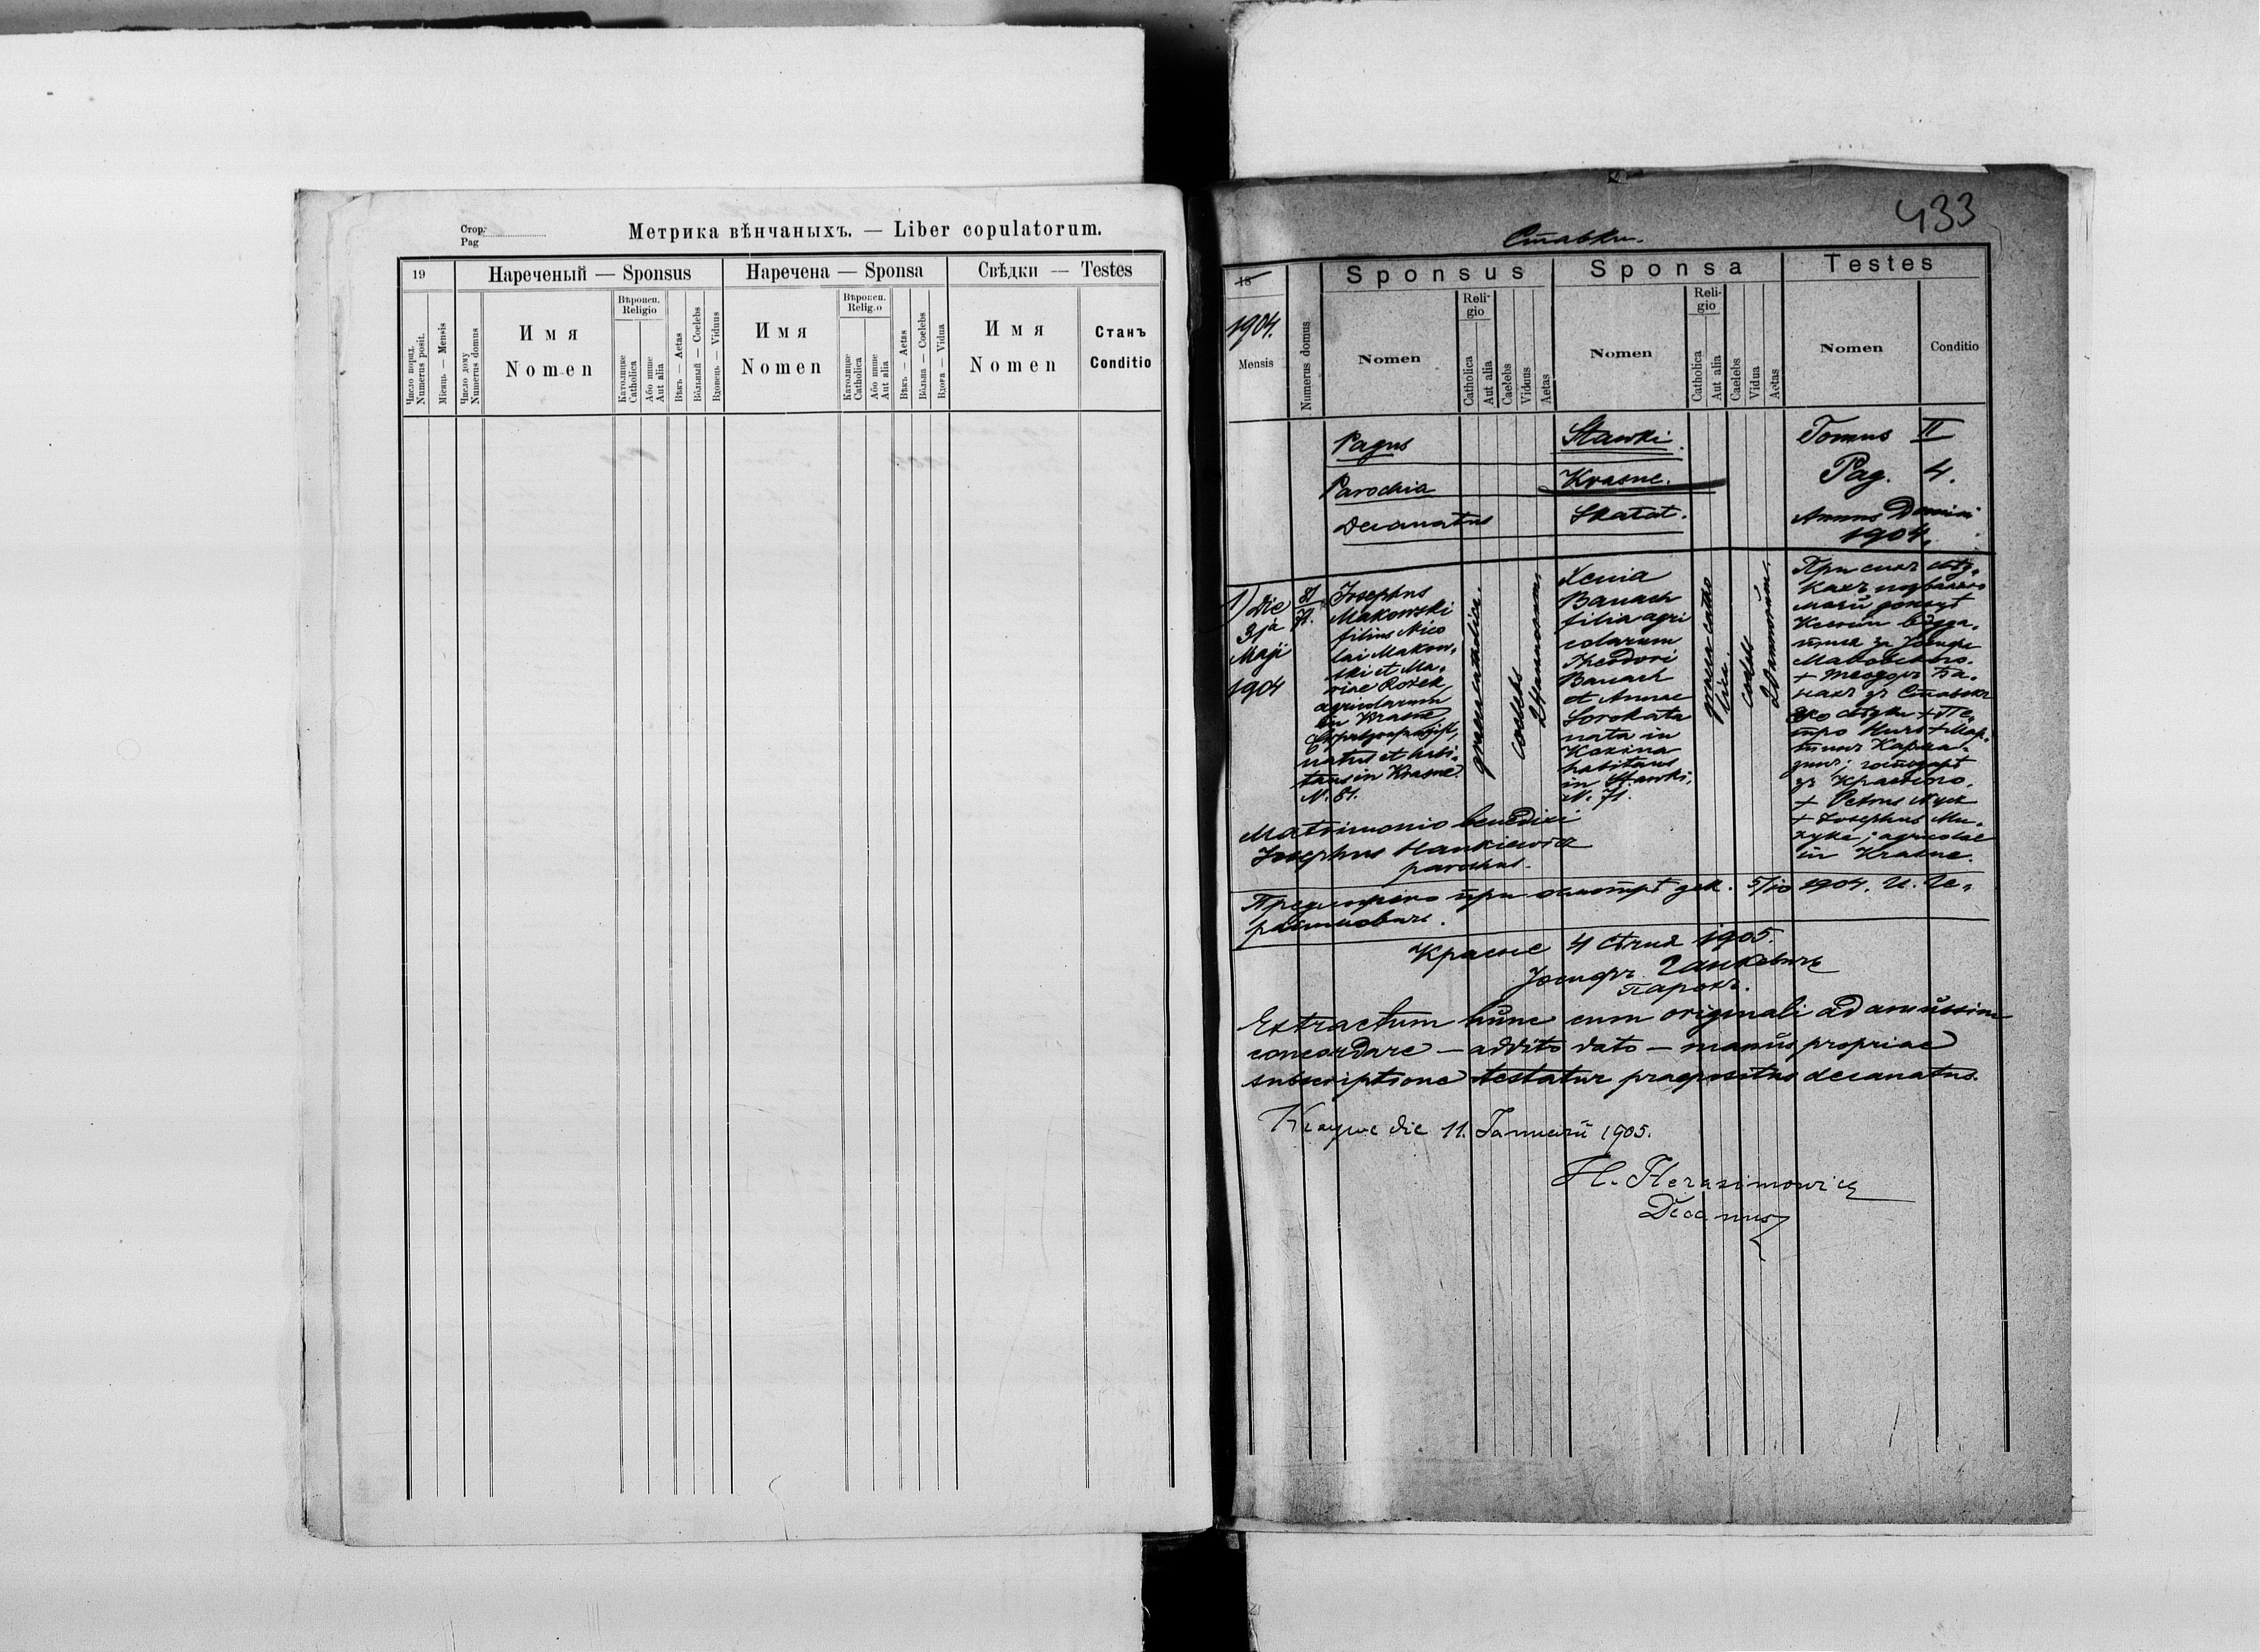 Стор.
Pag
Метрика вѣнчаныхъ. — Liber copulatorum.
19
Нареченый — Sponsus
Наречена — Sponsa
Свѣдки — Testes
Число поряд.
Numerus posit.
Місяць — Mensis
Число дому
Numerus domus
Имя
Nomen
Вѣроисп.
Religio
Католицке
Catholica
Або инше
Aut alia
Вѣкъ — Aetas
Вôльный — Coelebs
Вдовець — Viduus
Имя
Nomen
Вѣроисп.
Religio
Католицке
Catholica
Або инше
Aut alia
Вѣкъ — Aetas
Вôльна — Coelebs
Вдова — Vidua
Имя
Nomen
Станъ
Conditio
433
Ставки.
18
1904.
Mensis
Numerus domus
Sponsus
Nomen
Reli-
gio
Catholica
Aut alia
Caelebs
Viduus
Aetas
Sponsa
Nomen
Reli-
gio
Catholica
Aut alia
Caelebs
Vidua
Aetas
Testes
Nomen
Conditio
Pagus Stawki. Tomus II
Parochia Krasne. Pag. 4.
Decanatus Skatat. Annus Domini
1904.
1) Die
3ja
Maji
1904
81
71.
Josephus
Makowski
filius Nico
lai Makow-
ski et Ma-
riae Rożek
agricolarum
in Krasne,
natus et habi-
tans in Krasne
N. 81.
graeco catholica.
coelebs
24 annorum
Xenia
Banach
filia agri
colarum
Theodori
Banach
et Annae
Sorokata
nata in
Kozina
habitans
in Stawki.
N. 71.
graeco catho
lica.
coelebs
20 annorum.
При сихъ свѣд-
кахъ
Ксенію
за Іосифа
Маковского.
+ Теодоръ Ба-
нахъ зъ Ставокъ
яко свѣдки + Пе-
тро + Мар-
тинъ
зъ Красного.
+ Petrus
+ Josephus Mu-
zyka; agricolae
in Krasne.
Matrimonio benedixi
Josephus Hankiewicz
parochus.
при дек. 5/10 1904. И. Ге-
расимовичъ.
Красне 4 Сѣчня 1905.
Іосифъ Ганкевичъ
парохъ.
Extractum hunc cum originali ad amussim
concordare — addito dato — manus propriae
subscriptione testatur praepositus decanatus.
die 11. Januarii 1905.
H. Herasimowicz
Decanus